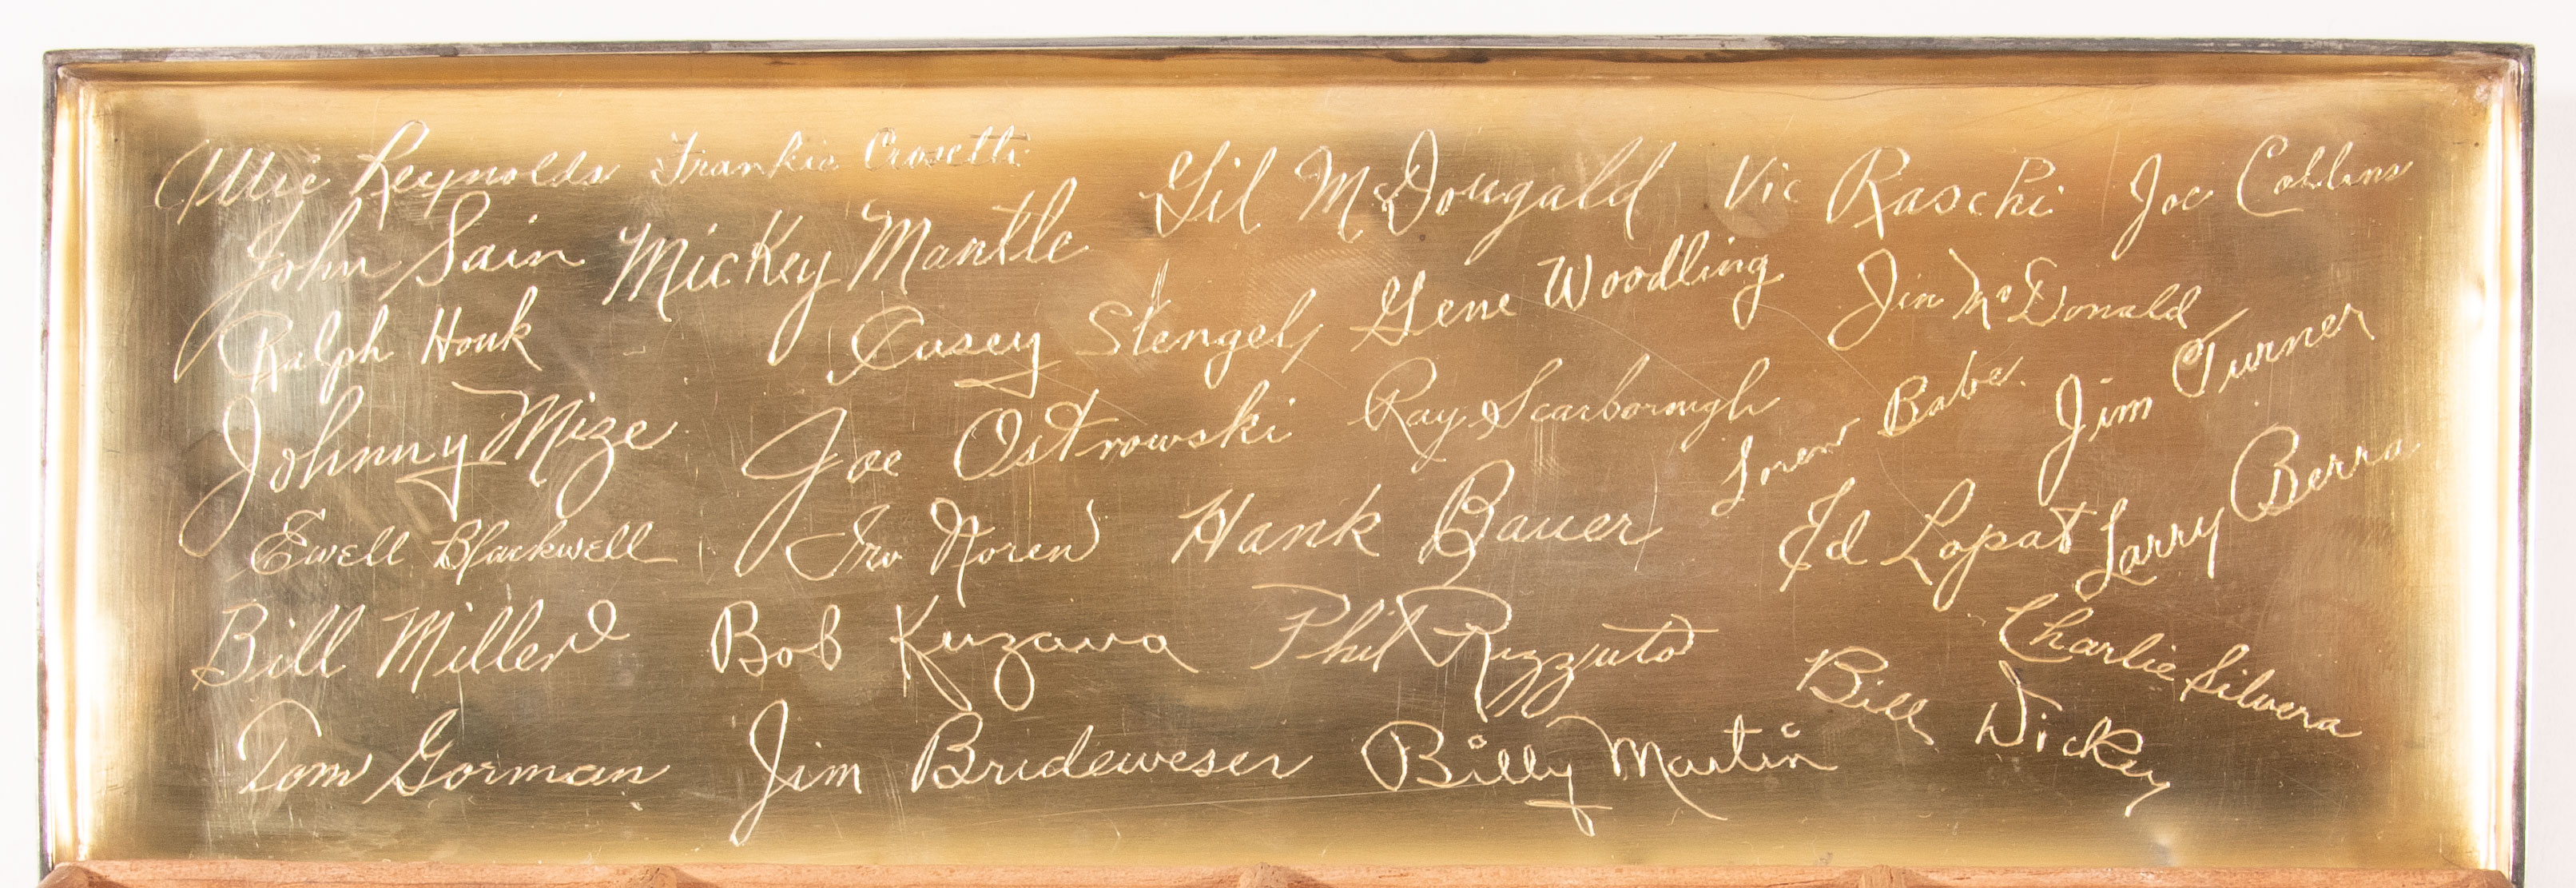 Allie Reynolds Frankie Crosetti Gil McDougald Vic Raschi Joe Collins
John Sain Mickey Mantle Gene Woodling Jim McDonald
Ralph Houk Casey Stengel Jim Turner
Johnny Mize Joe Ostrowski Ray Scarborough Loren Babe.
Ewell Blackwell Irv Noren Hank Bauer Ed Lopat Larry Berra
Bill Miller Bob Kuzava Phil Rizzuto Charlie Silvera
Tom Gorman Jim Brideweser Billy Martin Bill Dickey